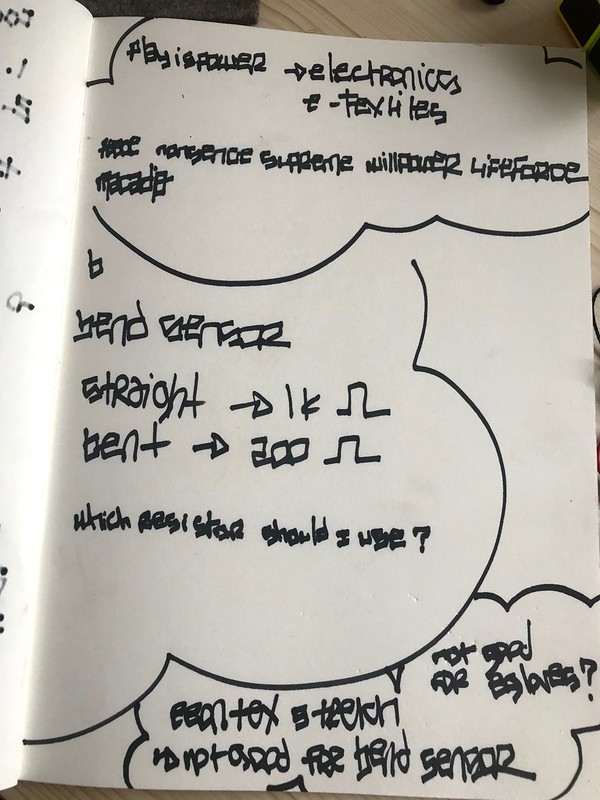 Play is Power → electronics
e-textiles
nonsence supreme willPower Lifeforce
b
bend sensor
straight → 1k Ω
bent → 200 Ω
which resistor should I use?
not good
for gloves?
eeontex stretch
→ not good for bend sensor